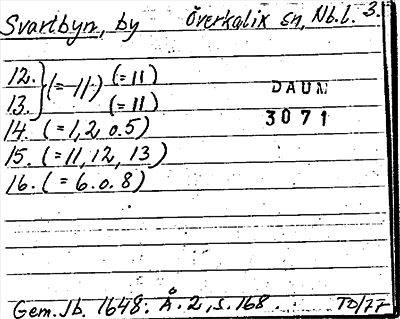 Svartbyn, by Överkalix sn, Nb.l. 3.
12. } (= 11) (= 11)
13. (= 11)
DAUM
3071
14. (= 1, 2, o. 5)
15. (= 11, 12, 13)
16. (= 6. o. 8)
Gem. Jb. 1648: Å. 2, s. 168. TO/77